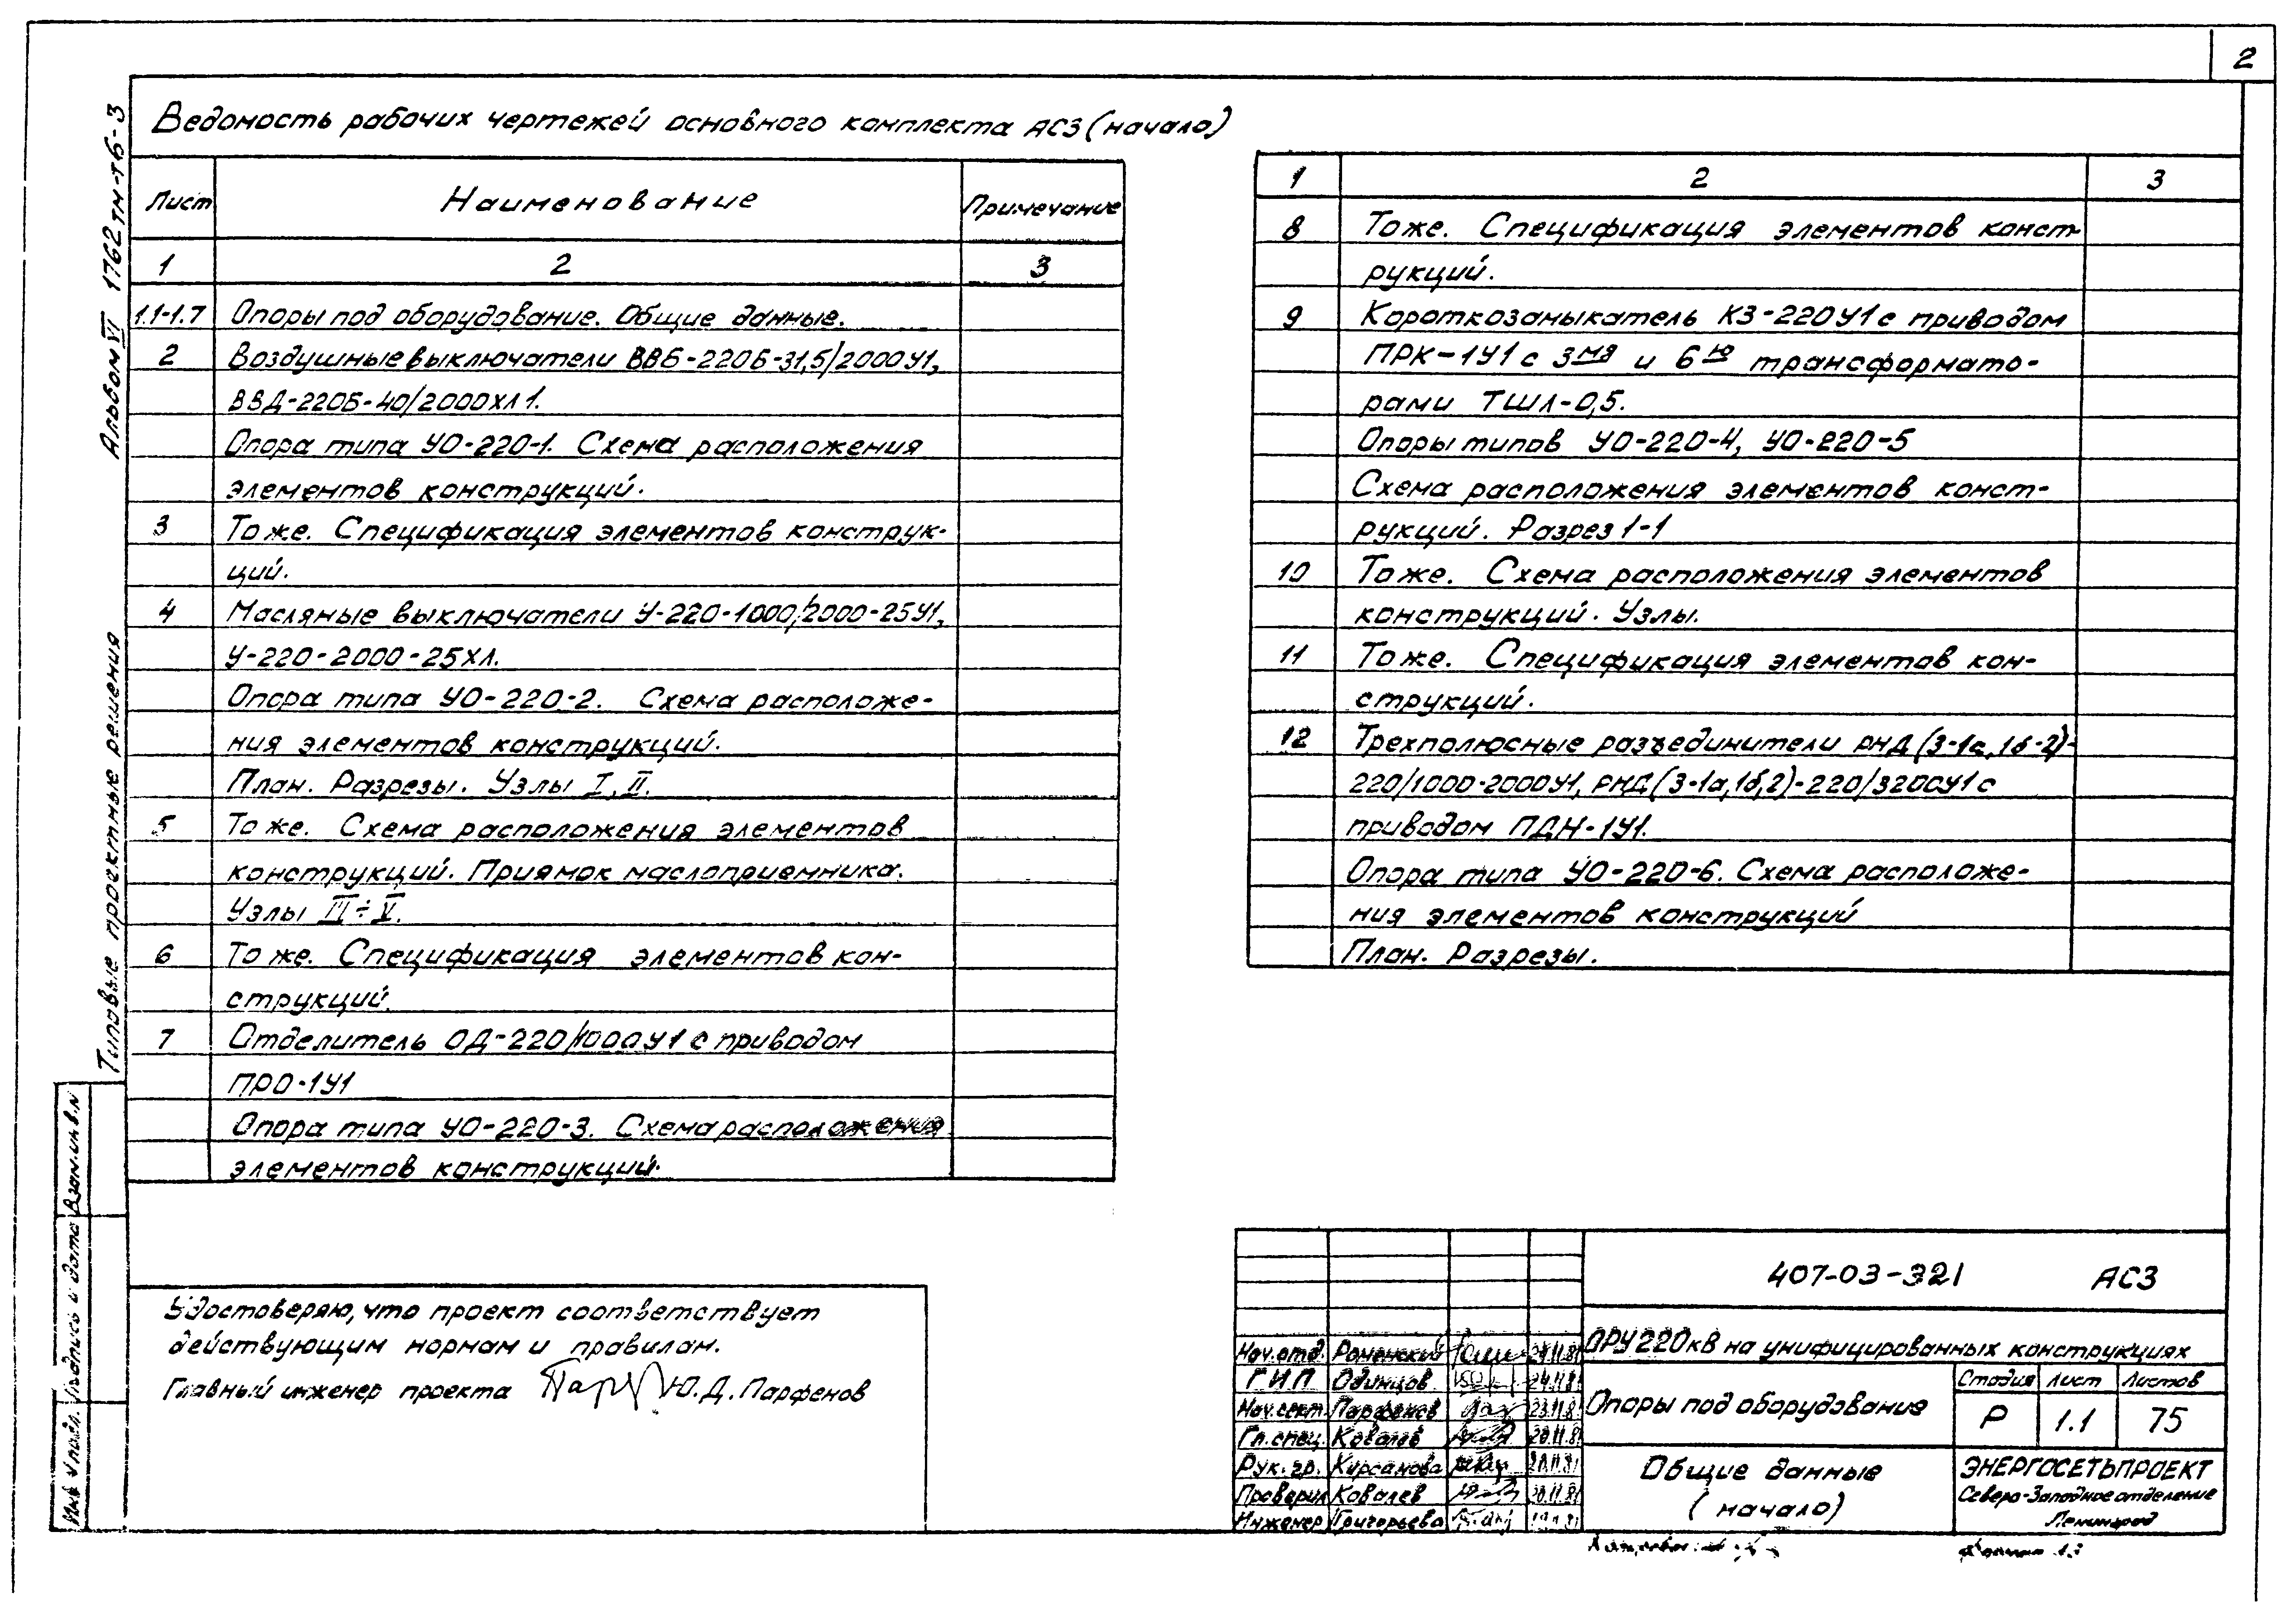 2
Ведомость рабочих чертежей основного комплекта АС3 (начало)
Лист Наименование Примечание
1 2 3
1.1-1.7 Опоры под оборудование. Общие данные.
2 Воздушные выключатели ВВБ-220Б-31,5/2000У1,
ВВД-220Б-40/2000ХЛ1.
Опора типа УО-220-1. Схема расположения
элементов конструкций.
3 То же. Спецификация элементов конструк-
ций.
4 Масляные выключатели У-220-1000/2000-25У1,
У-220-2000-25ХЛ.
Опора типа УО-220-2. Схема расположе-
ния элементов конструкций.
План. Разрезы. Узлы I, II.
5 То же. Схема расположения элементов
конструкций. Приямок маслоприемника.
Узлы III÷V.
6 То же. Спецификация элементов кон-
струкций.
7 Отделитель ОД-220/1000У1 с приводом
ПРО-1У1
Опора типа УО-220-3. Схема расположения
элементов конструкций.
1 2 3
8 То же. Спецификация элементов конст-
рукций.
9 Короткозамыкатель КЗ-220У1 с приводом
ПРК-1У1 с 3мя и 6ю трансформато-
рами ТШЛ-0,5.
Опоры типов УО-220-4, УО-220-5
Схема расположения элементов конст-
рукций. Разрез 1-1
10 То же. Схема расположения элементов
конструкций. Узлы.
11 То же. Спецификация элементов кон-
струкций.
12 Трехполюсные разъединители РНД(З-1а,1б-2)-
220/1000-2000У1, РНД(З-1а,1б,2)-220/3200У1 с
приводом ПДН-1У1.
Опора типа УО-220-6. Схема расположе-
ния элементов конструкций
План. Разрезы.
Альбом VI 1762тм-т6-3
Типовые проектные решения
Взам. инв. N
Подпись и дата
Инв. N подл.
Удостоверяю, что проект соответствует
действующим нормам и правилам.
Главный инженер проекта Ю.Д. Парфенов
407-03-321 АС3
ОРУ 220кВ на унифицированных конструкциях
Нач.отд. Роменский 24.11.81
ГИП Одинцов 24.11.81
Нач.сект. Парфенов 23.11.81
Гл.спец. Ковалев 20.11.81
Рук.гр. Кирсанова 20.11.81
Проверил Ковалев 20.11.81
Инженер Григорьева
Опоры под оборудование
Стадия Лист Листов
Р 1.1 75
Общие данные
(начало)
ЭНЕРГОСЕТЬПРОЕКТ
Северо-Западное отделение
Ленинград
Формат